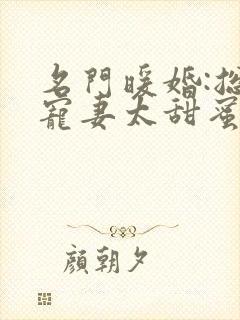 名門暖婚:總
寵妻太甜蜜
顏朝夕